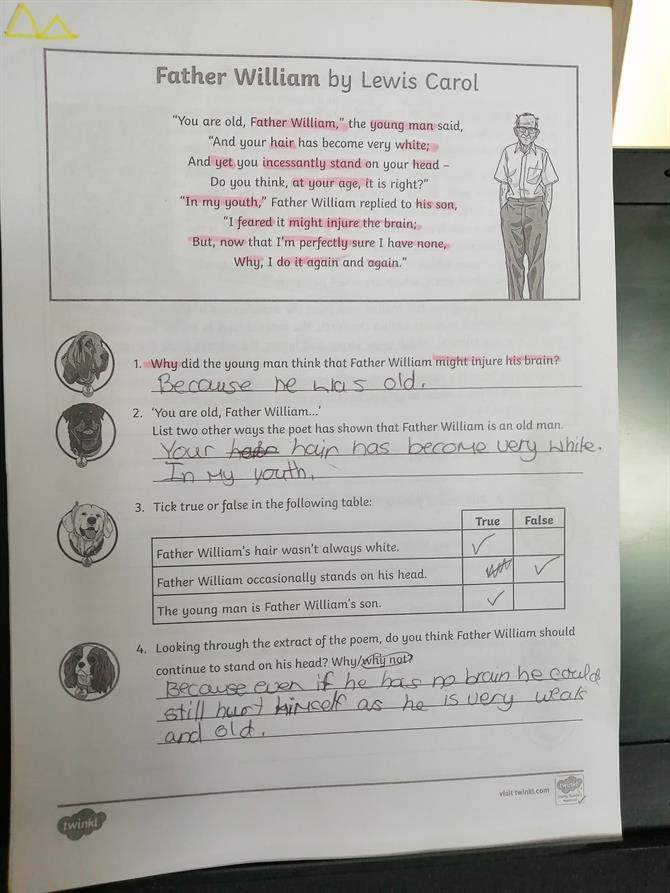 Father William by Lewis Carol
“You are old, Father William,” the young man said,
“And your hair has become very white;
And yet you incessantly stand on your head –
Do you think, at your age, it is right?”
“In my youth,” Father William replied to his son,
“I feared it might injure the brain;
But, now that I’m perfectly sure I have none,
Why, I do it again and again.”
1. Why did the young man think that Father William might injure his brain?
Because he was old.
2. ‘You are old, Father William...’
List two other ways the poet has shown that Father William is an old man.
Your hair has become very white.
In my youth.
3. Tick true or false in the following table:
True False
Father William’s hair wasn’t always white. ✓
Father William occasionally stands on his head. ✓
The young man is Father William’s son. ✓
4. Looking through the extract of the poem, do you think Father William should
continue to stand on his head? Why/why not?
Because even if he has no brain he could
still hurt himself as he is very weak
and old.
visit twinkl.com
twinkl